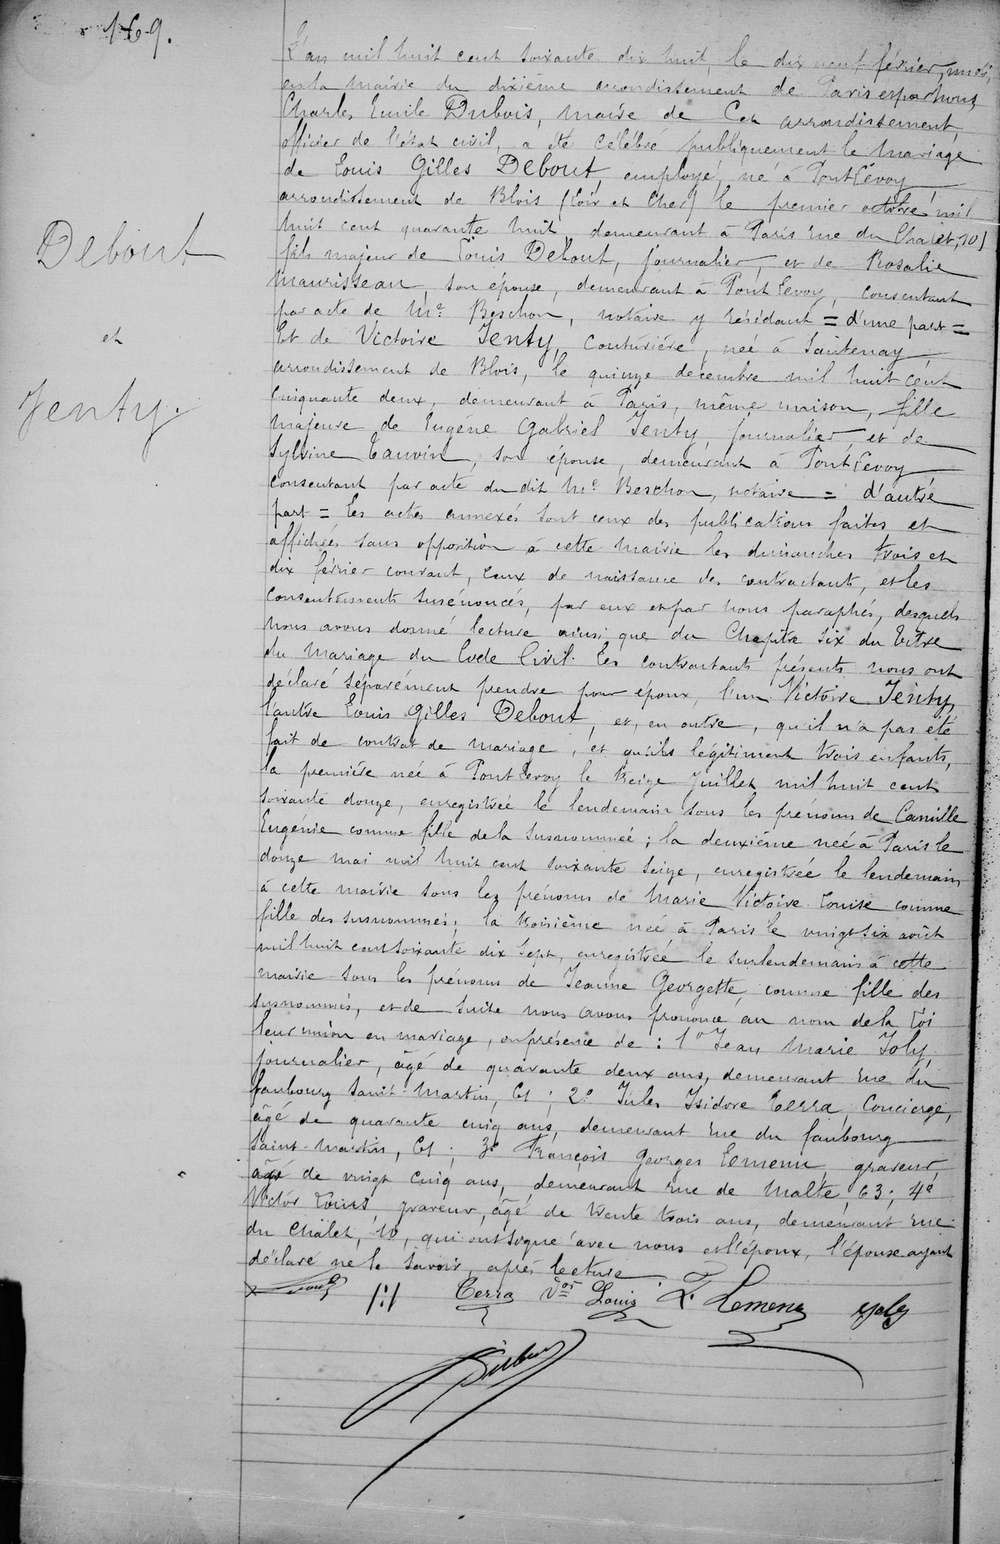 169.
Debout
et
Jenty.
L'an mil huit cent soixante dix huit, le dix neuf février,
en la mairie du dixième arrondissement de Paris et par nous
Charles Emile Dubois, maire de Cet arrondissement,
officier de l'état civil, a été célébré publiquement le mariage
de Louis Gilles Debout, employé, né à Pontlevoy
arrondissement de Blois (Loir et Cher) le premier octobre mil
huit cent quarante huit, demeurant à Paris rue du Chalet, 10,
fils majeur de Louis Debout, journalier, et de Rosalie
Maurisseau, son épouse, demeurant à Pontlevoy, consentant
par acte de Me Beschon, notaire y résidant = d'une part =
Et de Victoire Jenty, Couturière, née à Santenay
arrondissement de Blois, le quinze décembre mil huit cent
Cinquante deux, demeurant à Paris, même maison, fille
majeure de Eugène Gabriel Jenty, journalier, et de
Sylvine Tauvin, son épouse, demeurant à Pontlevoy
consentant par acte du dit Me Beschon, notaire = d'autre
part = Les actes annexés sont ceux des publications faites et
affichées sans opposition à cette mairie les dimanches trois et
dix février courant, ceux de naissance des contractants, et les
consentements susénoncés, par eux et par nous paraphés, desquels
nous avons donné lecture ainsi que du Chapitre six du titre
du mariage du Code Civil. Les contractants présents nous ont
déclaré séparément prendre pour époux, l'un Victoire Jenty,
l'autre Louis Gilles Debout, et, en outre, qu'il n'a pas été
fait de contrat de mariage, et qu'ils légitiment trois enfants,
la première née à Pontlevoy le treize Juillet mil huit cent
soixante douze, enregistrée le lendemain sous les prénoms de Camille
Eugénie comme fille de la susnommée; la deuxième née à Paris le
douze mai mil huit cent soixante seize, enregistrée le lendemain
à cette mairie sous les prénoms de Marie Victoire Louise comme
fille des susnommés; la troisième née à Paris le vingt six août
mil huit cent soixante dix sept, enregistrée le surlendemain à cette
mairie sous les prénoms de Jeanne Georgette, comme fille des
susnommés, et de suite nous avons prononcé au nom de la Loi
leur union en mariage, en présence de: 1° Jean Marie Joly,
journalier, âgé de quarante deux ans, demeurant rue du
faubourg Saint-Martin, 61; 2° Jules Isidore Terra, Concierge,
âgé de quarante cinq ans, demeurant rue du faubourg
Saint-Martin, 61; 3° François Georges Lemenu, graveur,
âgé de vingt cinq ans, demeurant rue de Malte, 63; 4°
Victor Louis, graveur, âgé de trente trois ans, demeurant rue
du Chalet, 10, qui ont signé avec nous et l'époux, l'épouse ayant
déclaré ne le savoir, après lecture.
Terra Vor Louis Lemenu Joly
Dubois